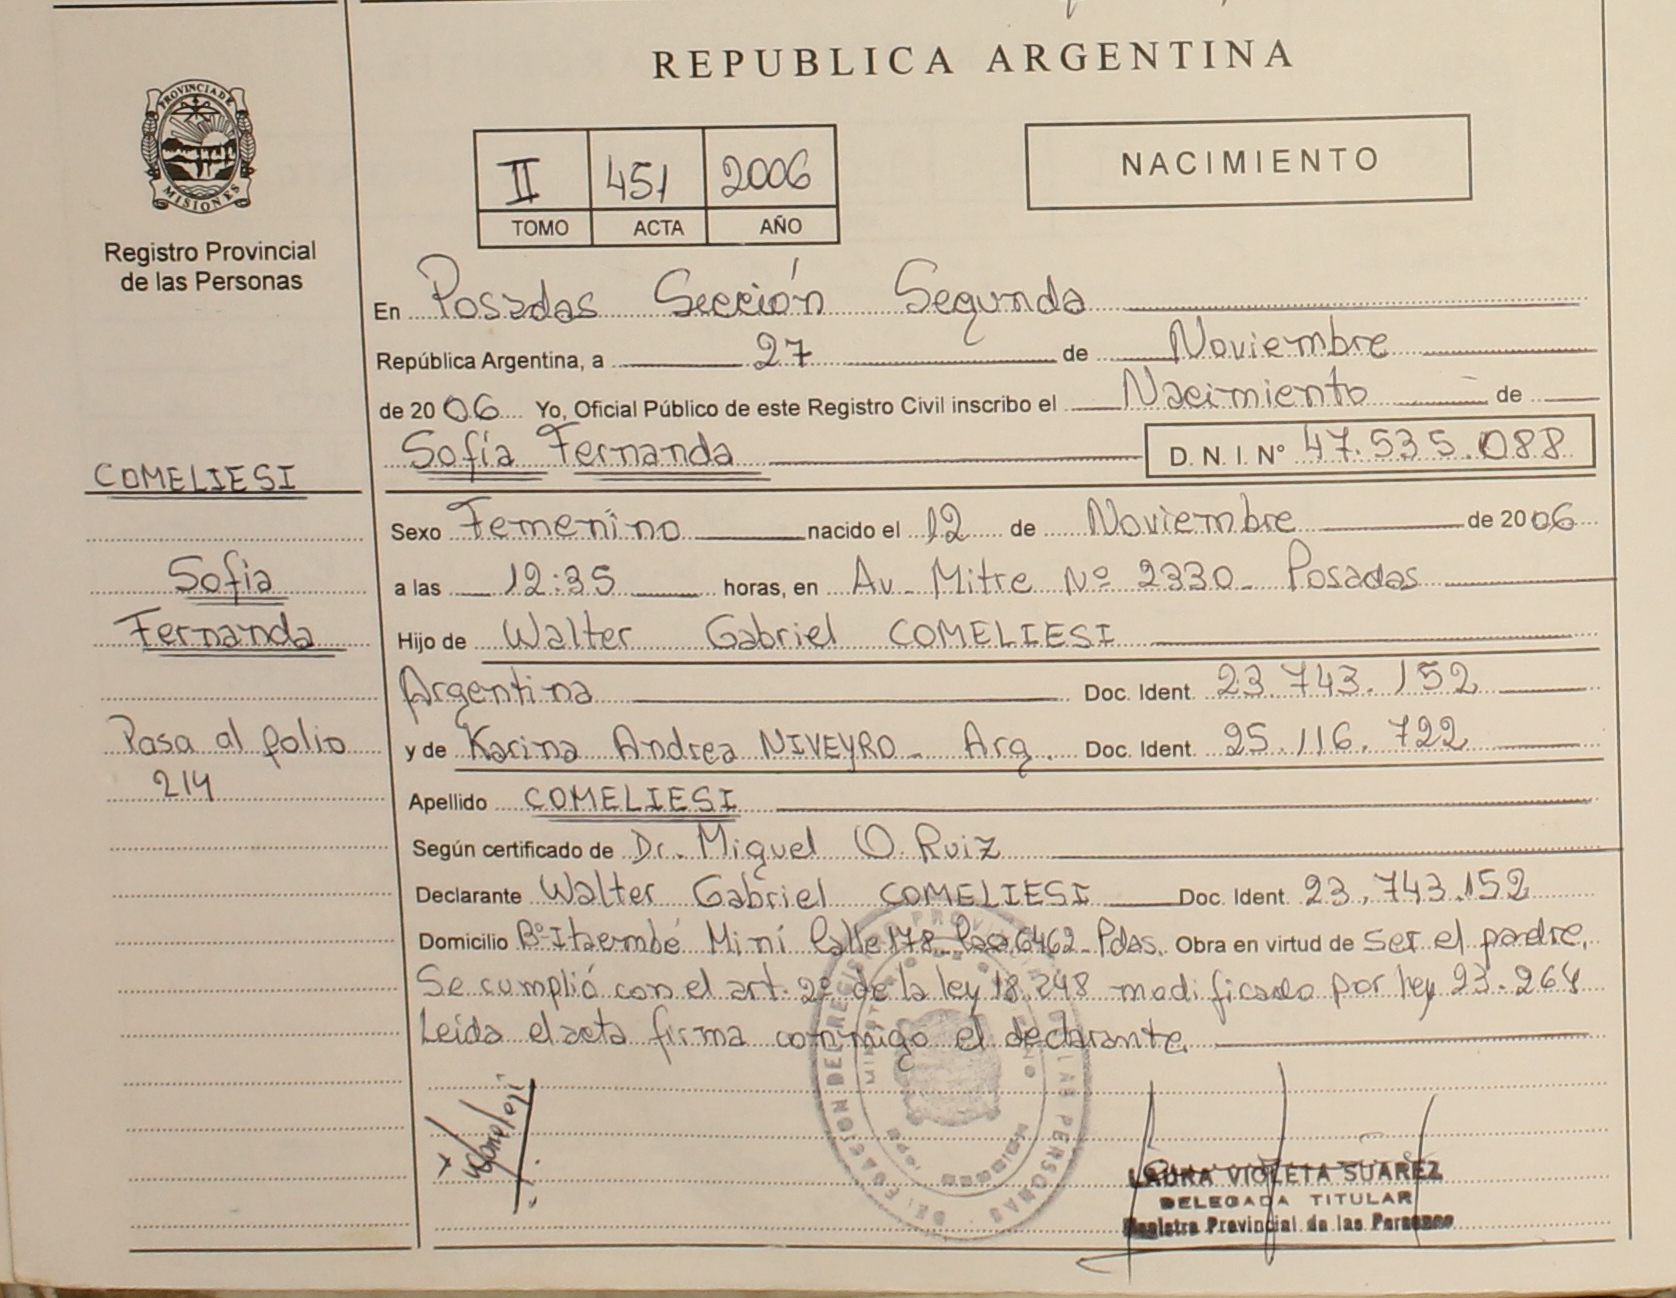 REPUBLICA ARGENTINA
PROVINCIA DE
MISIONES
Registro Provincial
de las Personas
II 451 2006
TOMO ACTA AÑO
NACIMIENTO
En Posadas Sección Segunda
República Argentina, a 27 de Noviembre
de 2006 Yo, Oficial Público de este Registro Civil inscribo el Nacimiento de
Sofía Fernanda D. N. I. Nº 47.535.088
COMELIESI
Sexo Femenino nacido el 12 de Noviembre de 2006
Sofia
a las 12:35 horas, en Av. Mitre Nº 2330 - Posadas
Fernanda
Hijo de Walter Gabriel COMELIESI
Argentina Doc. Ident. 23.743.152
Pasa al folio
214
y de Karina Andrea NIVEYRO - Arg. Doc. Ident. 25.116.722
Apellido COMELIESI
Según certificado de Dr. Miguel O. Ruiz
Declarante Walter Gabriel COMELIESI Doc. Ident. 23.743.152
Domicilio Bº Itaembé Miní Calle 178 6462 - Pdas. Obra en virtud de ser el padre.
Se cumplió con el art. 2º de la ley 18.248 modificado por ley 23.264
Leída el acta firma conmigo el declarante.
LAURA VIOLETA SUAREZ
DELEGADA TITULAR
Registro Provincial de las Personas